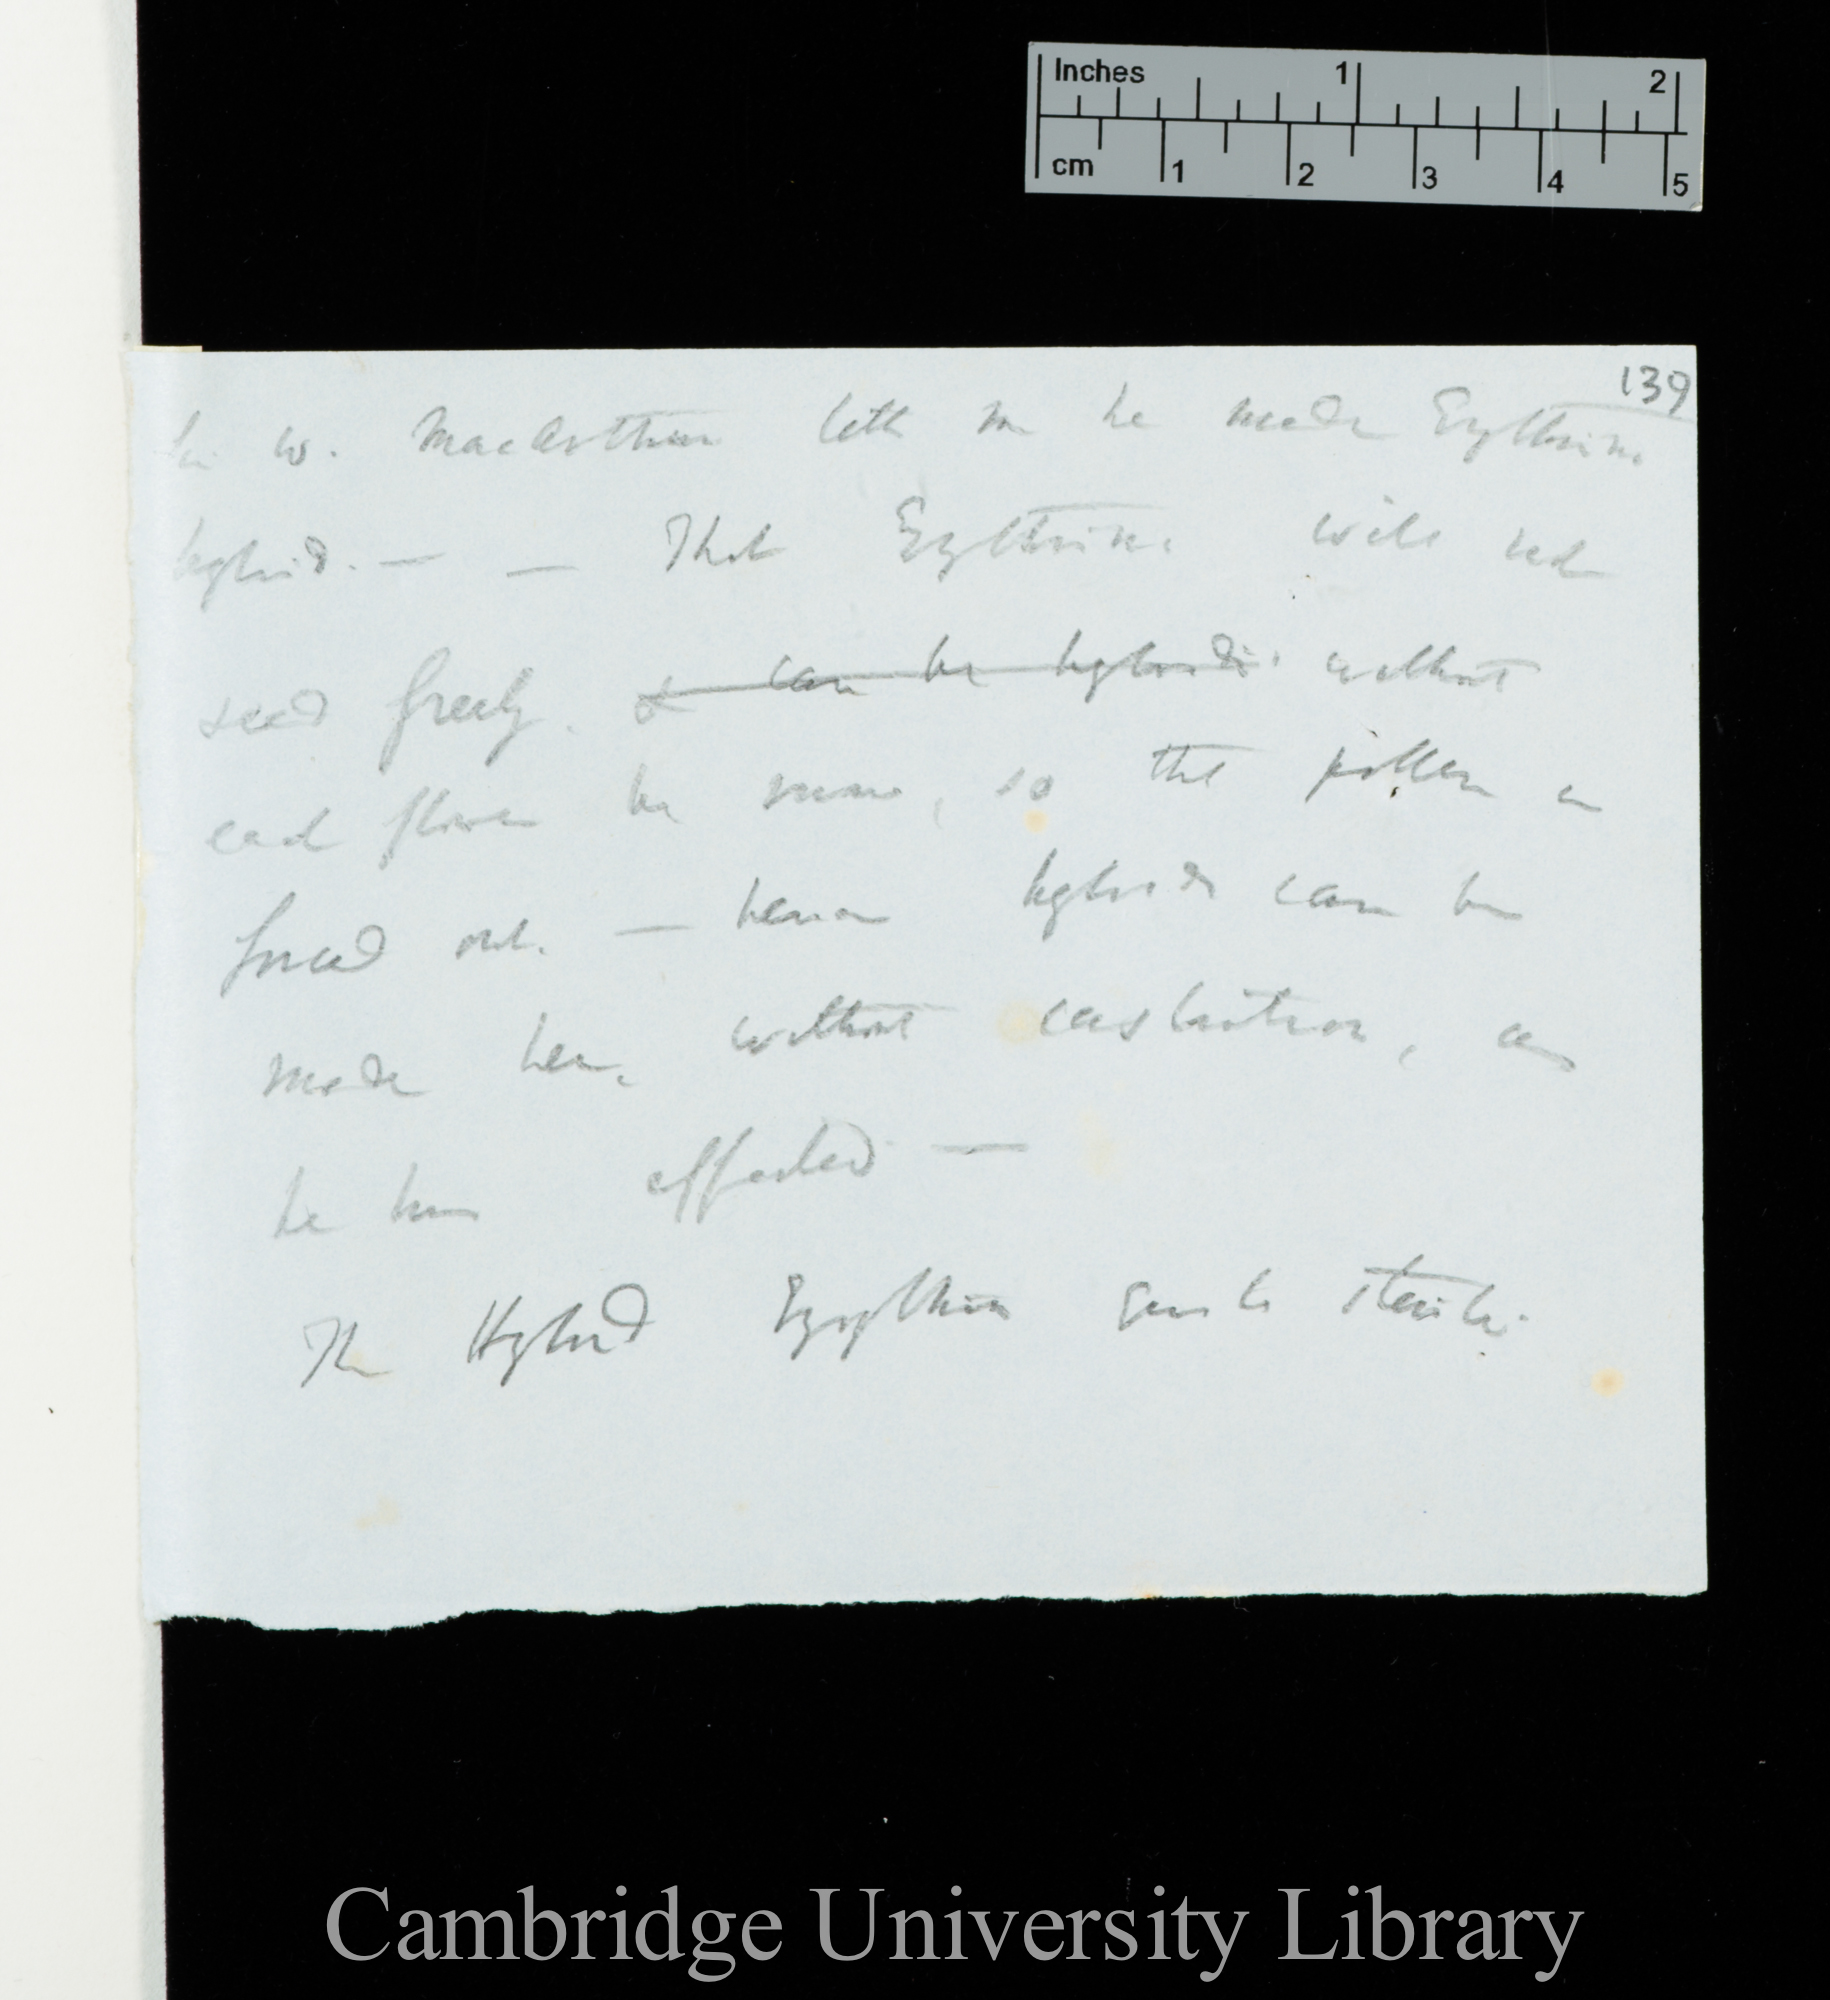 Inches 1 2
cm 1 2 3 4 5
139
Sir W. MacArthur tells me he made Erythrina
hybrid. — — That Erythrina will not
seed freely. & can be hybridi. without
each flower be move, so that pollen is
forced out. — hence hybrids can be
made here, without castration, as
he has effected —
The Hybrid Erythrina quite sterile.
Cambridge University Library